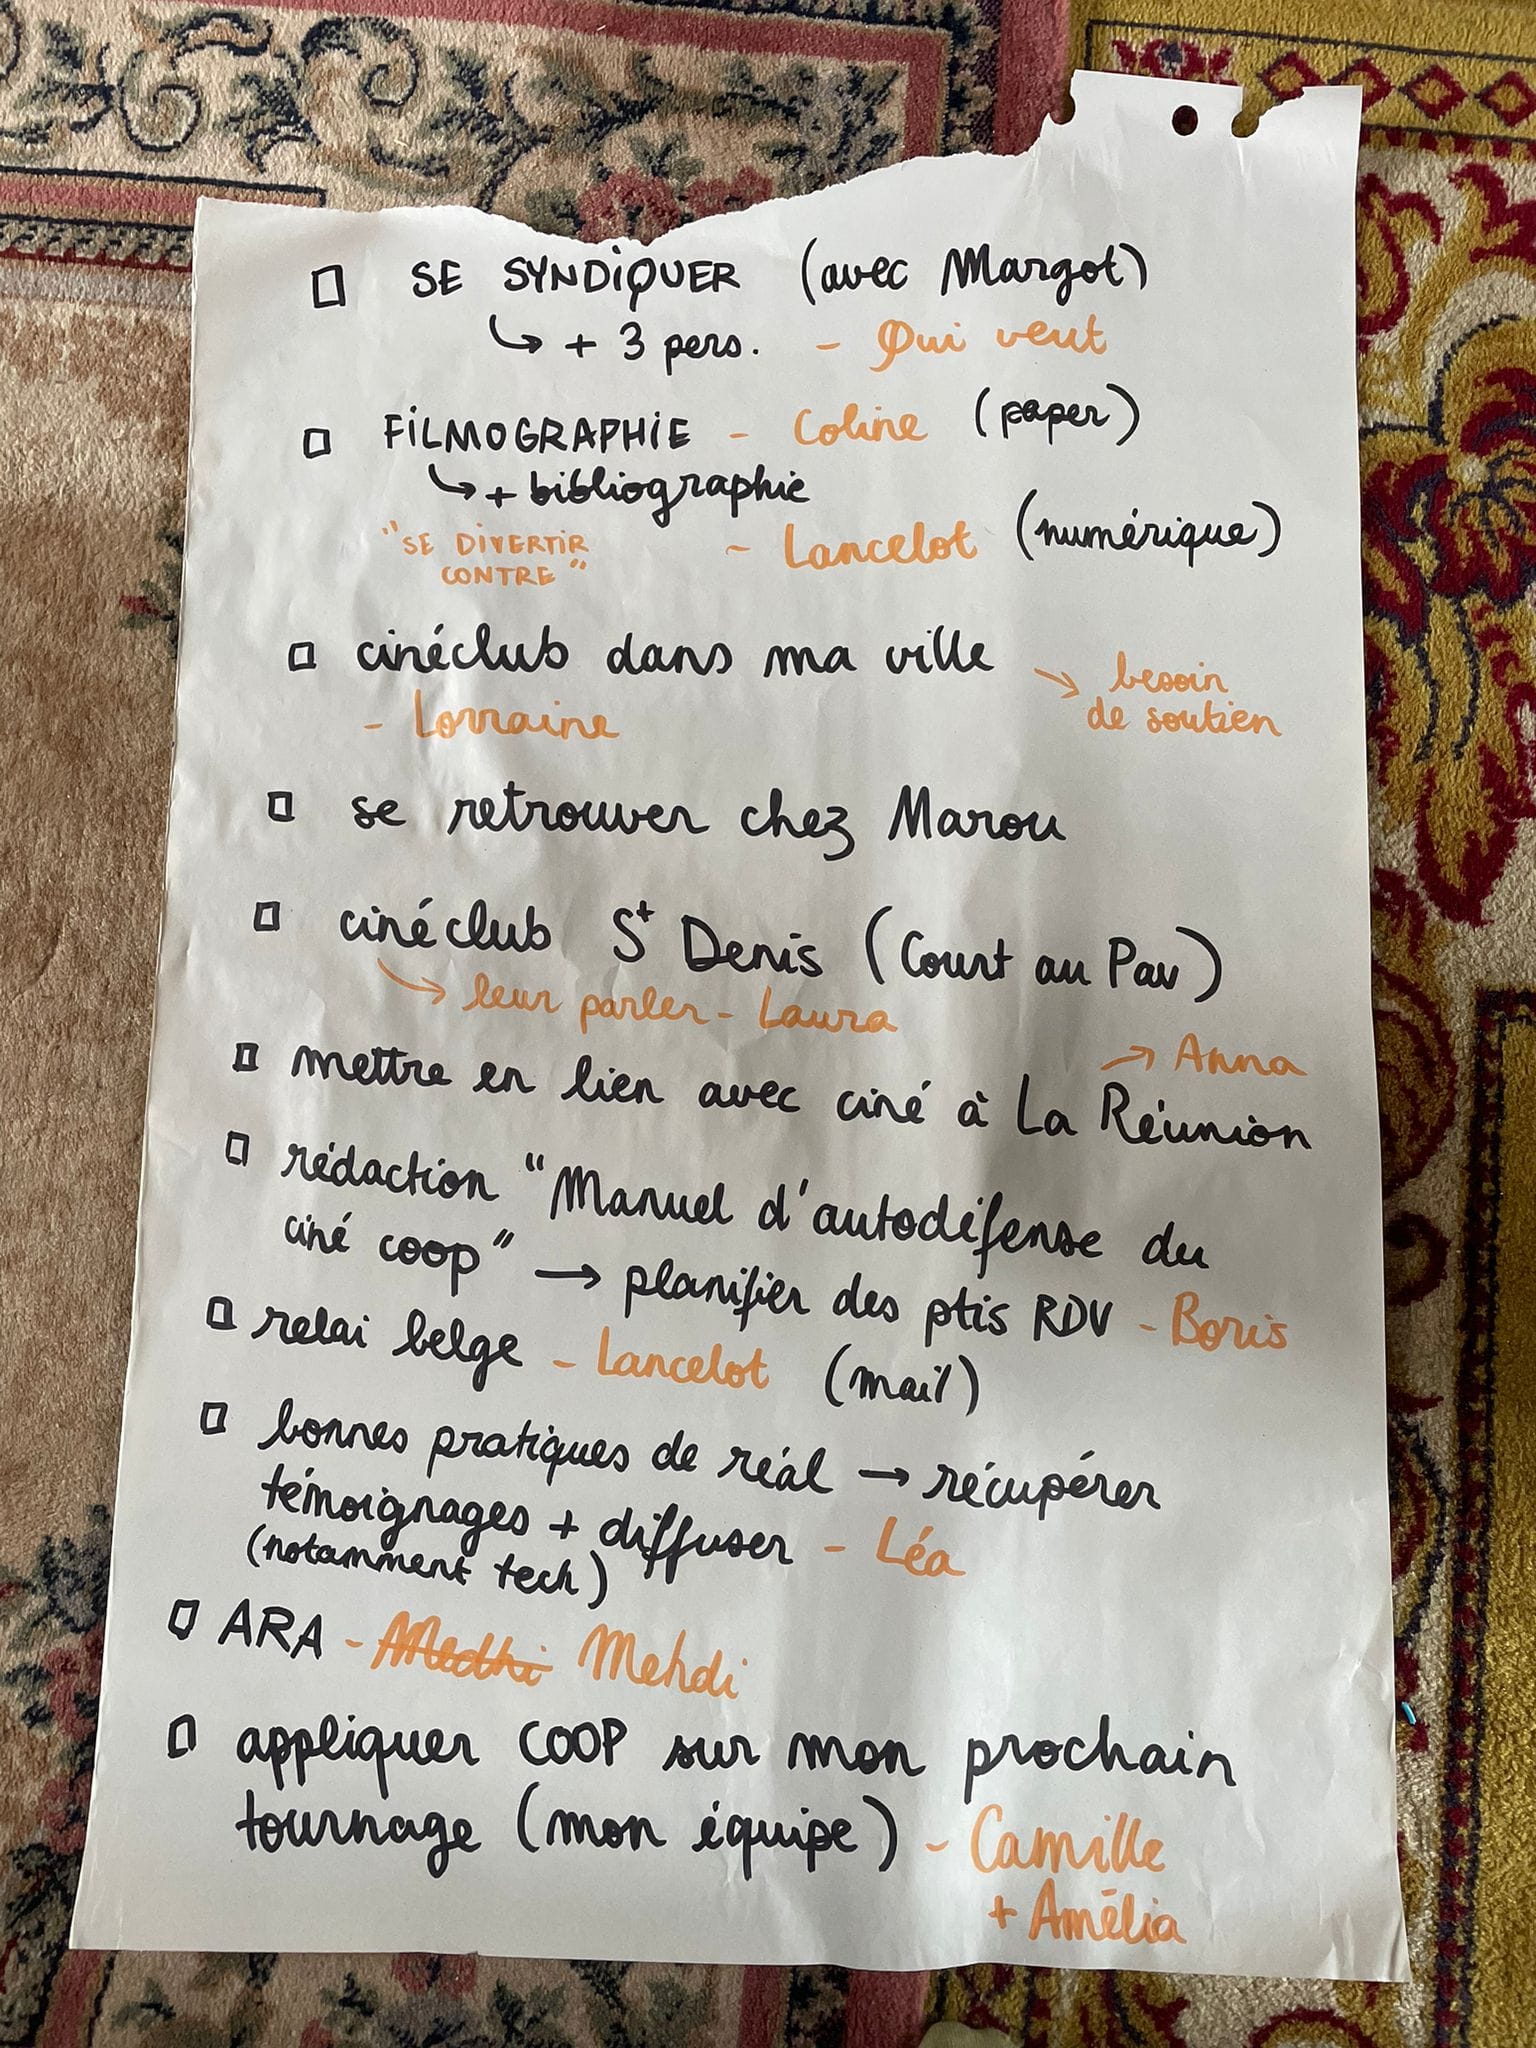 □ SE SYNDIQUER (avec Margot)
↳ + 3 pers. - Qui veut
□ FILMOGRAPHIE - Coline (paper)
↳ + bibliographie
"SE DIVERTIR
CONTRE"
- Lancelot (numérique)
□ cinéclub dans ma ville → besoin
de soutien
- Lorraine
□ se retrouver chez Marou
□ cinéclub St Denis (Court au Pav)
→ leur parler - Laura
→ Anna
□ mettre en lien avec ciné à La Réunion
□ rédaction "Manuel d'autodéfense du
ciné coop" → planifier des ptis RDV - Boris
□ relai belge - Lancelot (mail)
□ bonnes pratiques de réal → récupérer
témoignages + diffuser - Léa
(notamment tech)
□ ARA - Medhi Mehdi
□ appliquer COOP sur mon prochain
tournage (mon équipe) - Camille
+ Amélia